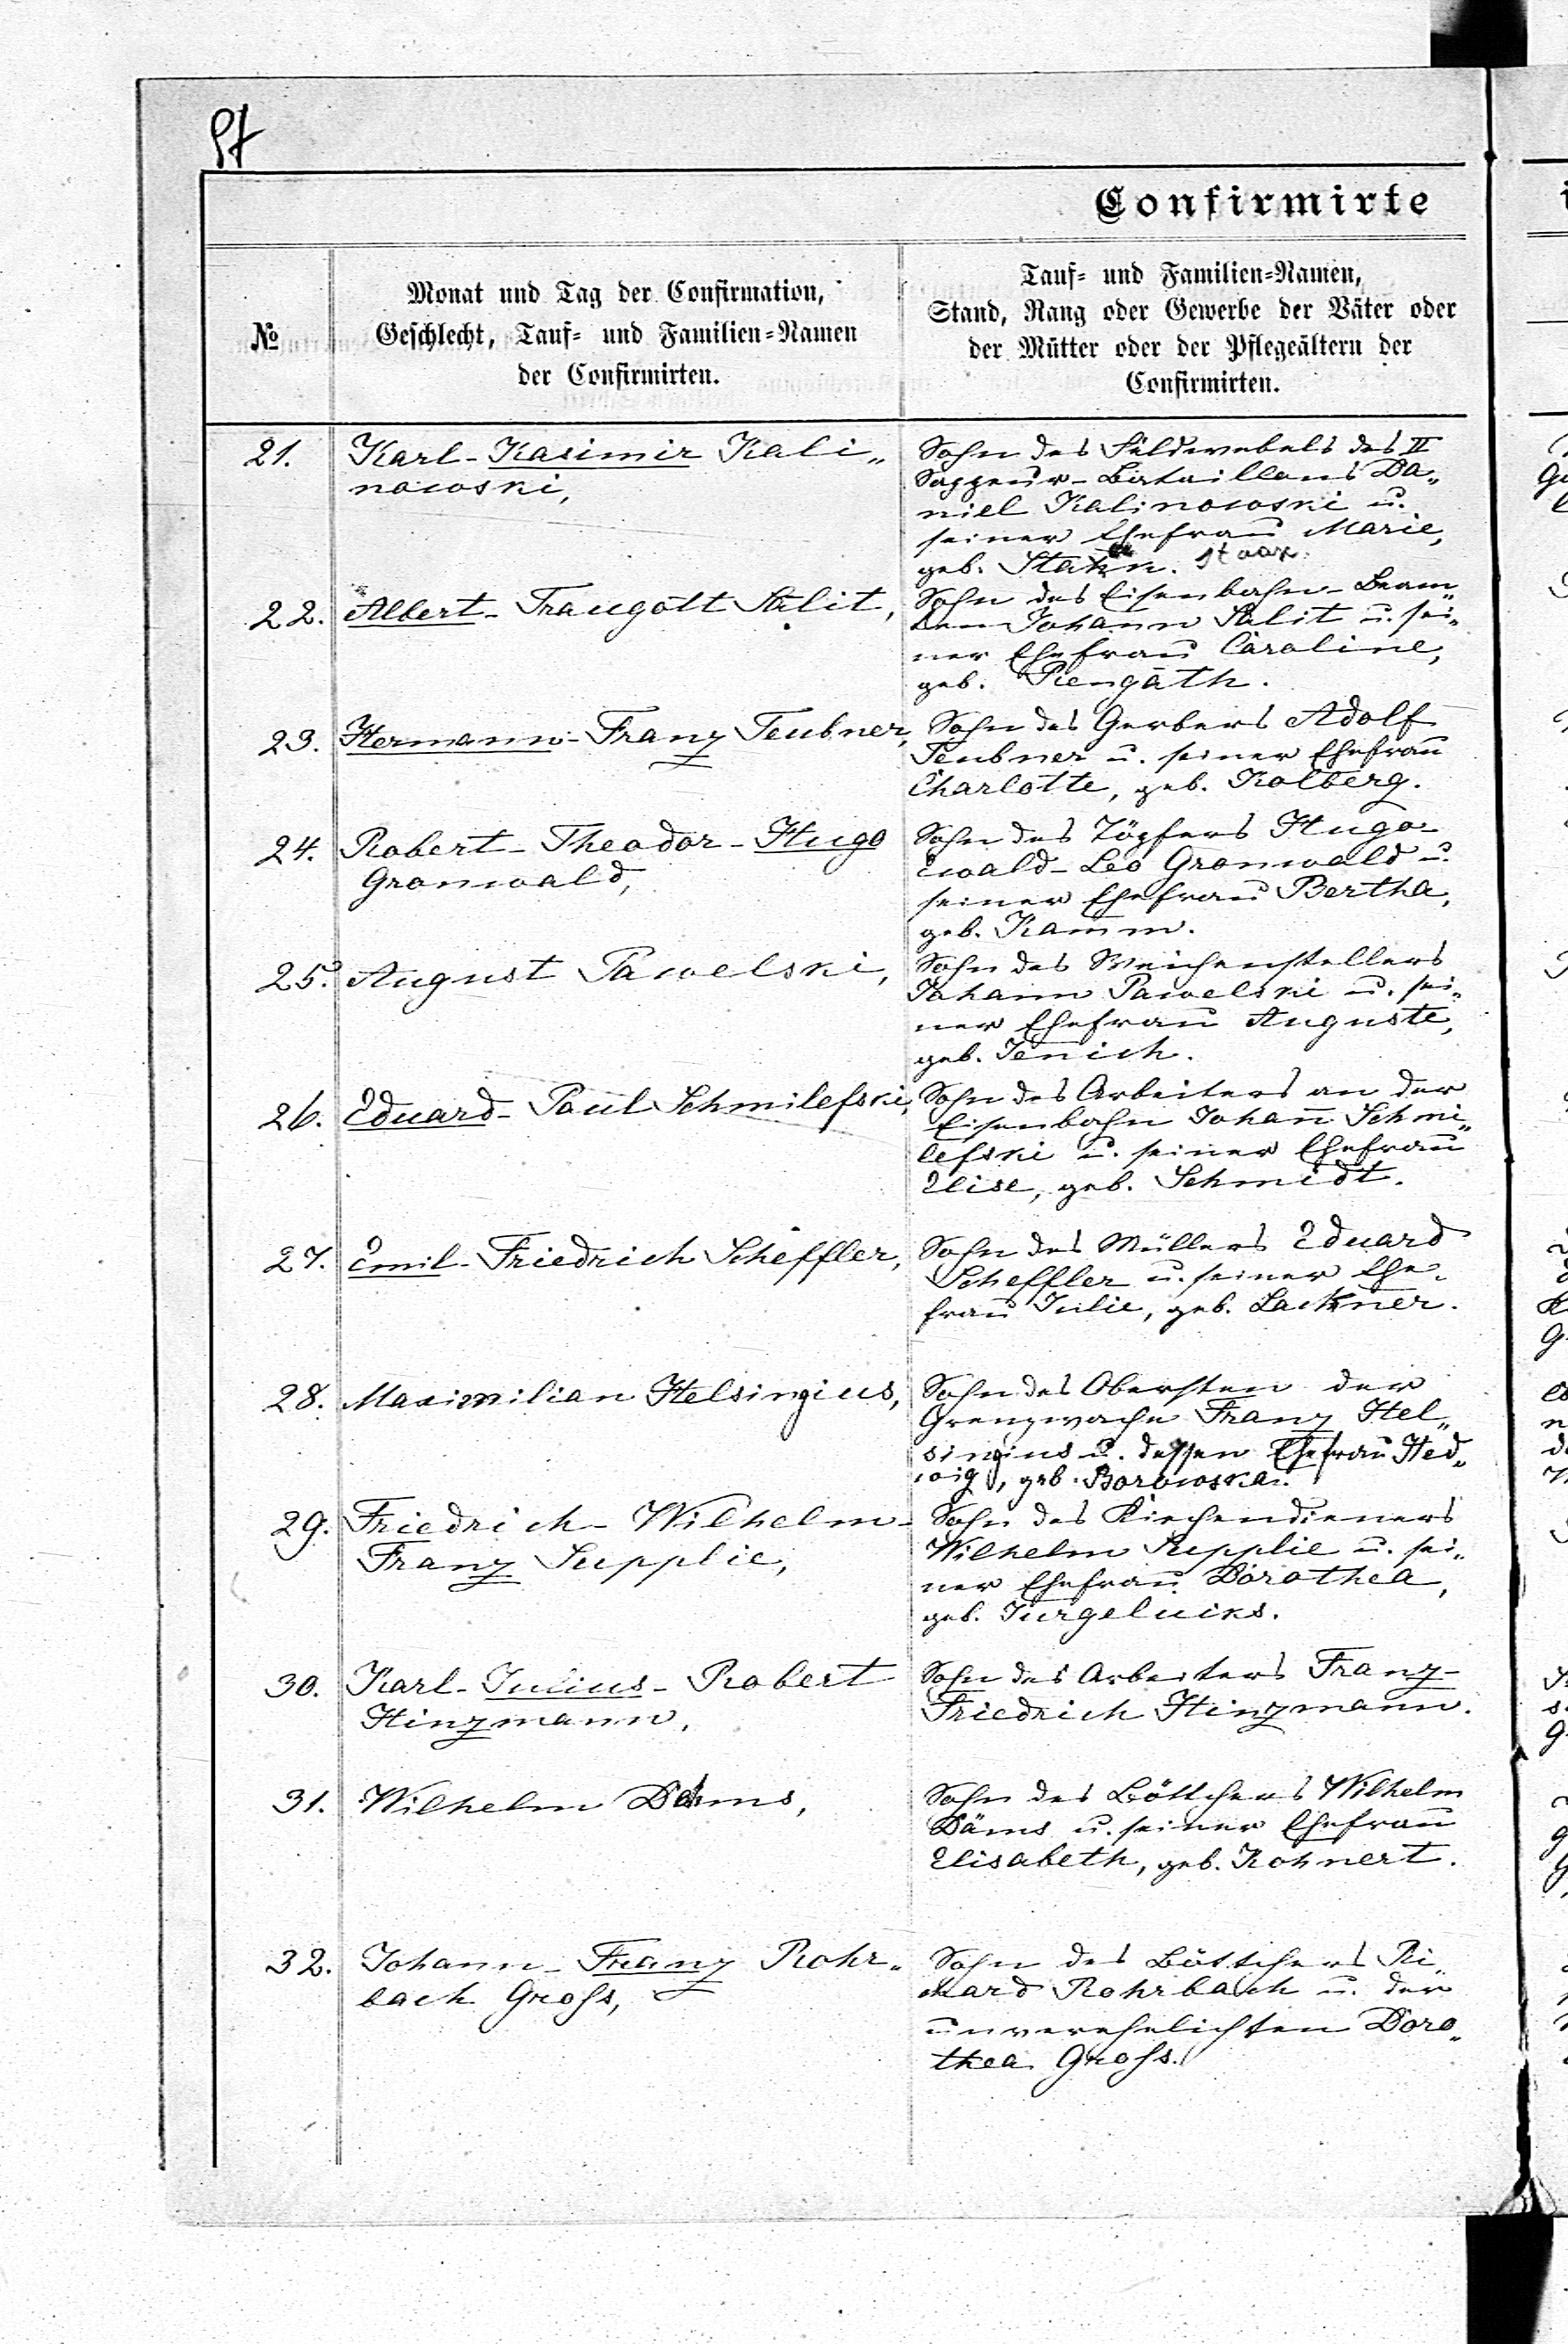 Confirmirte
№
Monat und Tag der Confirmation,
Geschlecht, Tauf- und Familien-Namen
der Confirmirten.
Tauf- und Familien-Namen,
Stand, Rang oder Gewerbe der Väter oder
der Mütter oder der Pflegeältern der
Confirmirten.
21.
Karl-Kasimir Kali„
nowski,
Sohn des Feldwebels des II
Sappeur-Bataillons Da„
niel Kalinowski u.
seiner Ehefrau Marie,
geb.
22.
Albert-Traugott Stalit,
Sohn des Eisenbahn-Beam„
ten Johann Stalit u. sei„
ner Ehefrau Caroline,
geb. Piengath.
23.
Hermann-Franz Teubner,
Sohn des Gerbers Adolf
Teubner u. seiner Ehefrau
Charlotte, geb. Kolberg.
24.
Robert-Theodor-Hugo
Gronwald,
Sohn des Töpfers Hugo-
Ewald-Leo Gronwald u.
seiner Ehefrau Bertha,
geb. Kamm.
25.
August Pawelski,
Sohn des Weichenstellers
Johann Pawelski u. sei„
ner Ehefrau Auguste,
geb. Jenich.
26.
Eduard-Paul Schmilefski,
Sohn des Arbeiters an der
Eisenbahn Johann Schmi„
lefski u. seiner Ehefrau
Elise, geb. Schmidt.
27.
Emil-Friedrich Scheffler,
Sohn des Müllers Eduard
Scheffler u. seiner Ehe„
frau Julie, geb. Lackner.
28.
Maximilian Helsingius,
Sohn des Obersten der
Grenzwache Franz Hel„
singius u. dessen Ehefrau Hed„
wig, geb. Borowska.
29.
Friedrich-Wilhelm-
Franz Supplie,
Sohn des Kirchendieners
Wilhelm Supplie u. sei„
ner Ehefrau Dorothea,
geb. Jurgeluiks.
30.
Karl-Julius-Robert
Hinzmann,
Sohn des Arbeiters Franz-
Friedrich Hinzmann.
31.
Wilhelm Däms,
Sohn des Böttchers Wilhelm
Däms u. seiner Ehefrau
Elisabeth, geb. Kohnert.
32.
Johann-Franz Rohr„
bach Groß,
Sohn des Böttchers Ri„
chard Rohrbach u. der
unverehelichten Doro„
thea Groß.